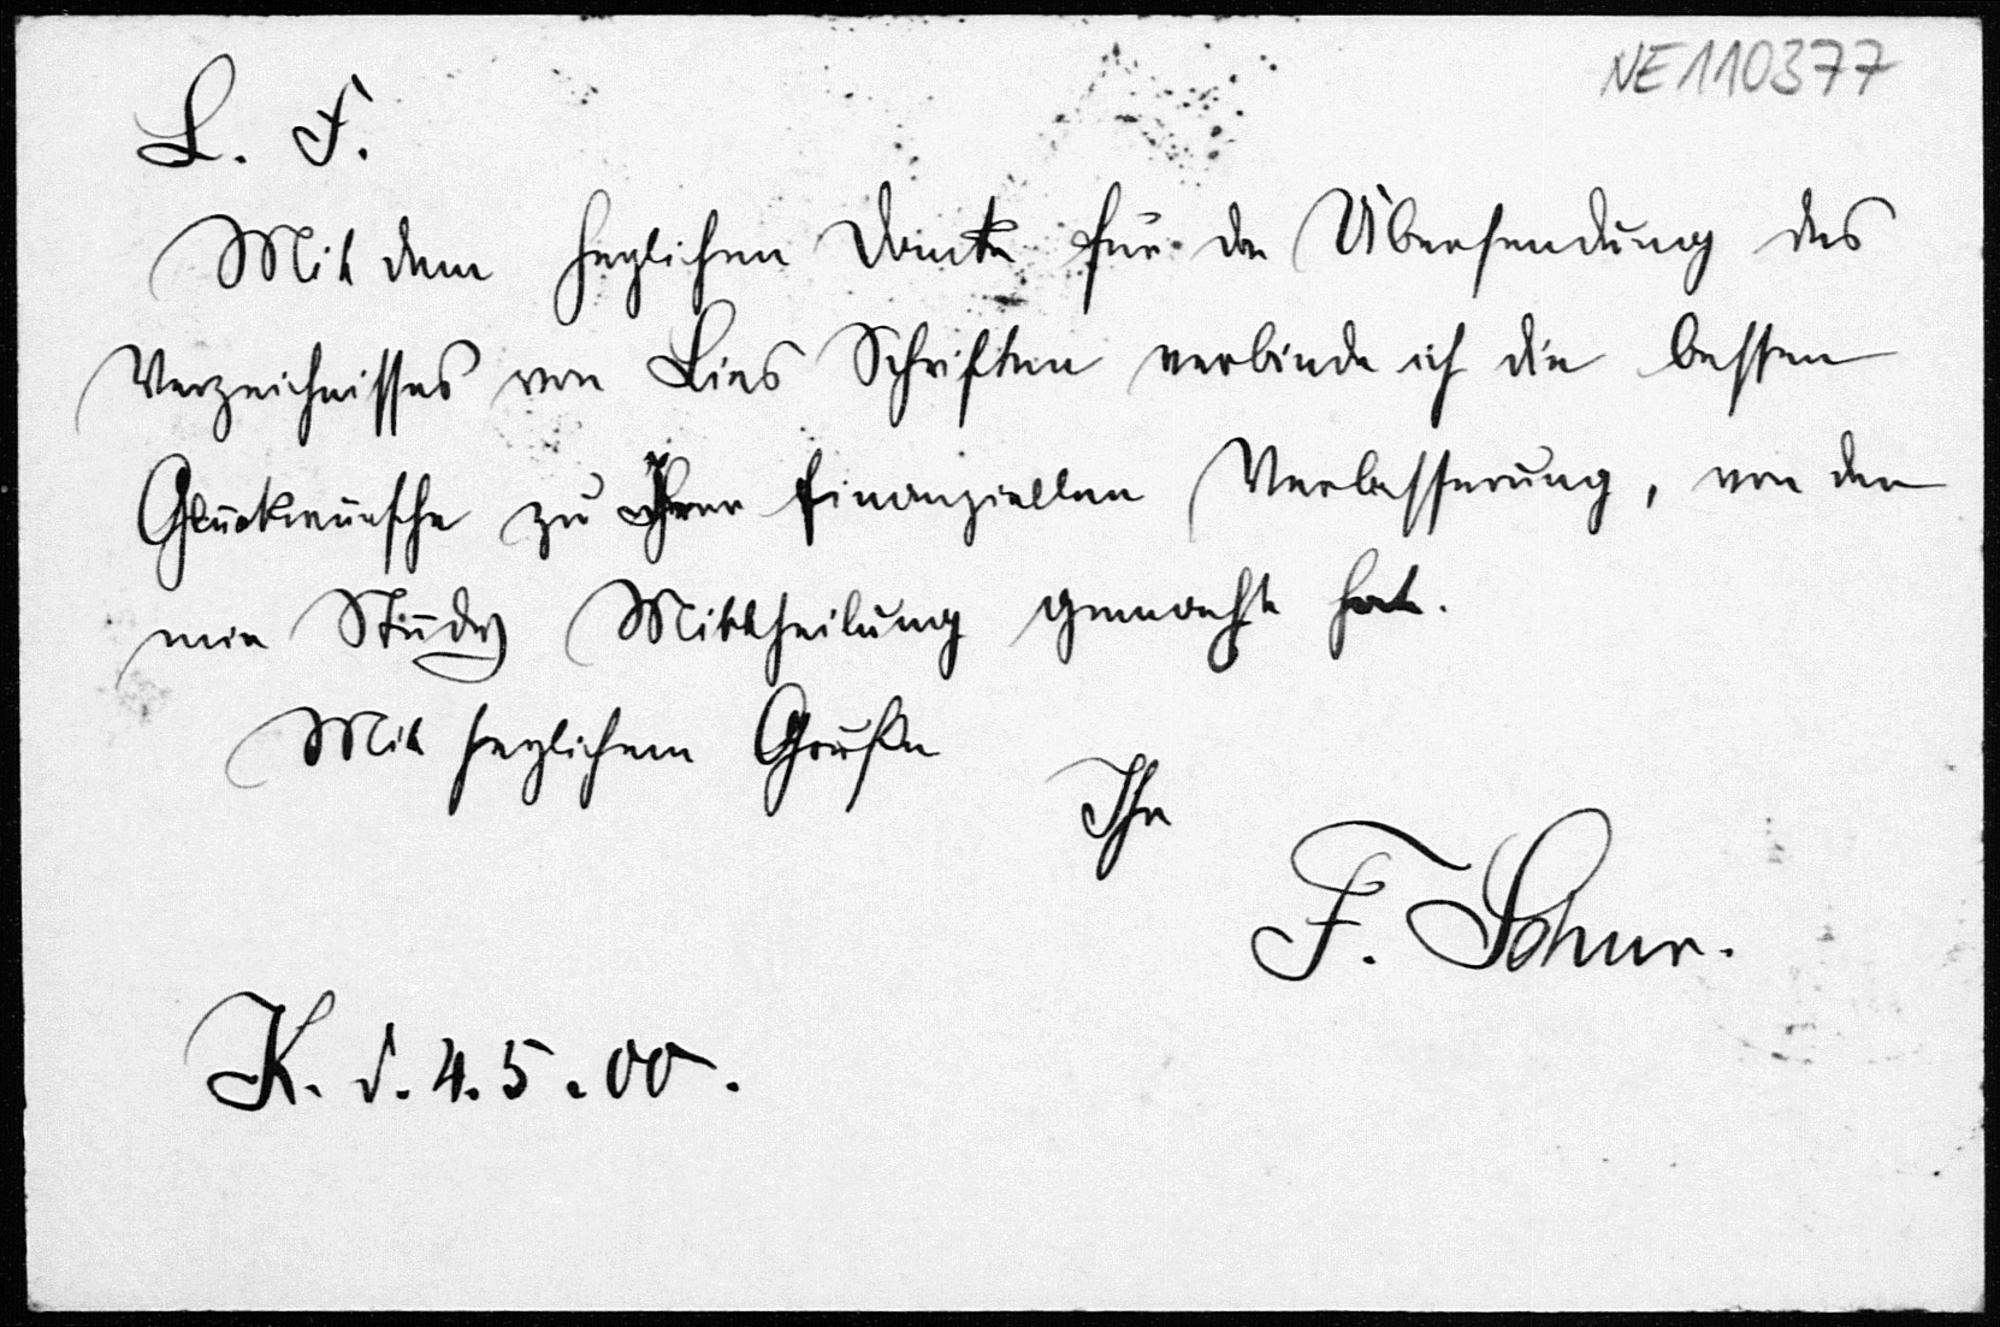 NE110377
L. F.
Mit dem herzlichen Danke für die Übersendung des
Verzeichnisses von Lies Schriften verbinde ich die besten
Glückwünsche zu Ihrer finanziellen Verbesserung, von der
mir Study Mittheilung gemacht hat.
Mit herzlichem Gruße
Ihr
F. Schur.
K. d. 4. 5. 00.